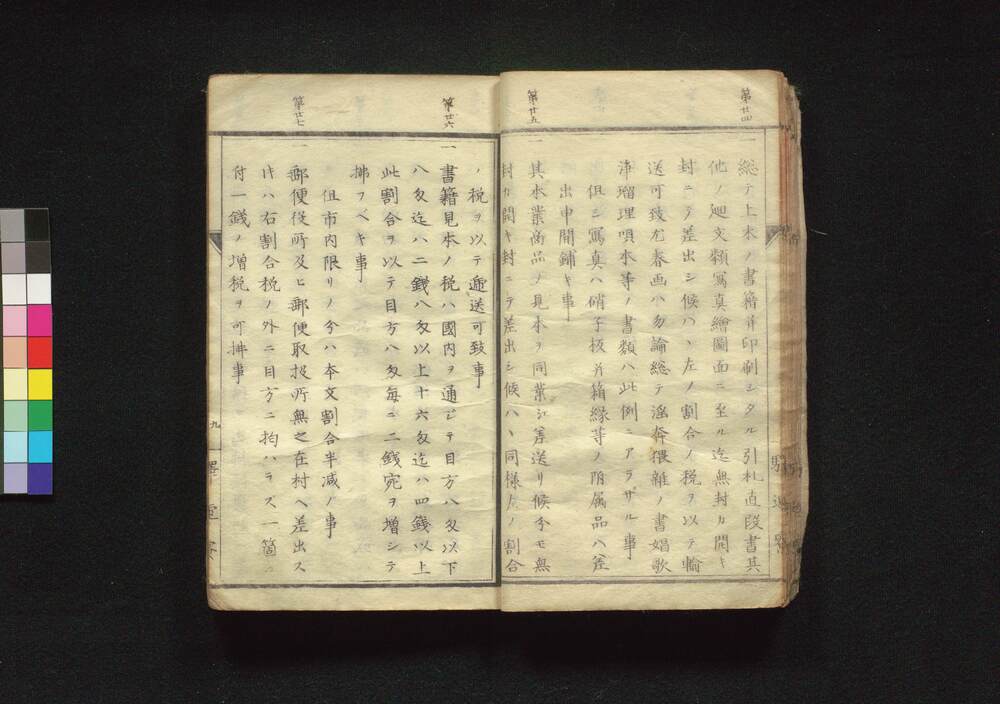 第廿四
一 総テ上木ノ書籍并印刷シタル引札直段書其
他ノ廻文類寫真繪圖面ニ至ル迄無封カ開キ
封ニテ差出シ候ハヽ左ノ割合ノ税ヲ以テ輸
送可致尤春画ハ勿論総テ淫奔猥雑ノ書唱歌
浄瑠理唄本等ノ書類ハ此例ニアラザル事
但シ寫真ハ硝子板并箱縁等ノ附属品ハ差
出申間鋪キ事
第廿五
一 其本業商品ノ見本ヲ同業江差送リ候分モ無
封カ開キ封ニテ差出シ候ハヽ同様左ノ割合
ノ税ヲ以テ逓送可致事
第廿六
一 書籍見本ノ税ハ國内ヲ通ジテ目方八匁以下
八匁迄ハ二錢八匁以上十六匁迄ハ四錢以上
此割合ヲ以テ目方八匁毎ニ二錢宛ヲ増シテ
拂フベキ事
但市内限リノ分ハ本文割合半減ノ事
第廿七
一 郵便役所及ヒ郵便取扱所無之在村ヘ差出ス
時ハ右割合税ノ外ニ目方ニ拘ハラズ一箇ニ
付一錢ノ増税ヲ可拂事
九